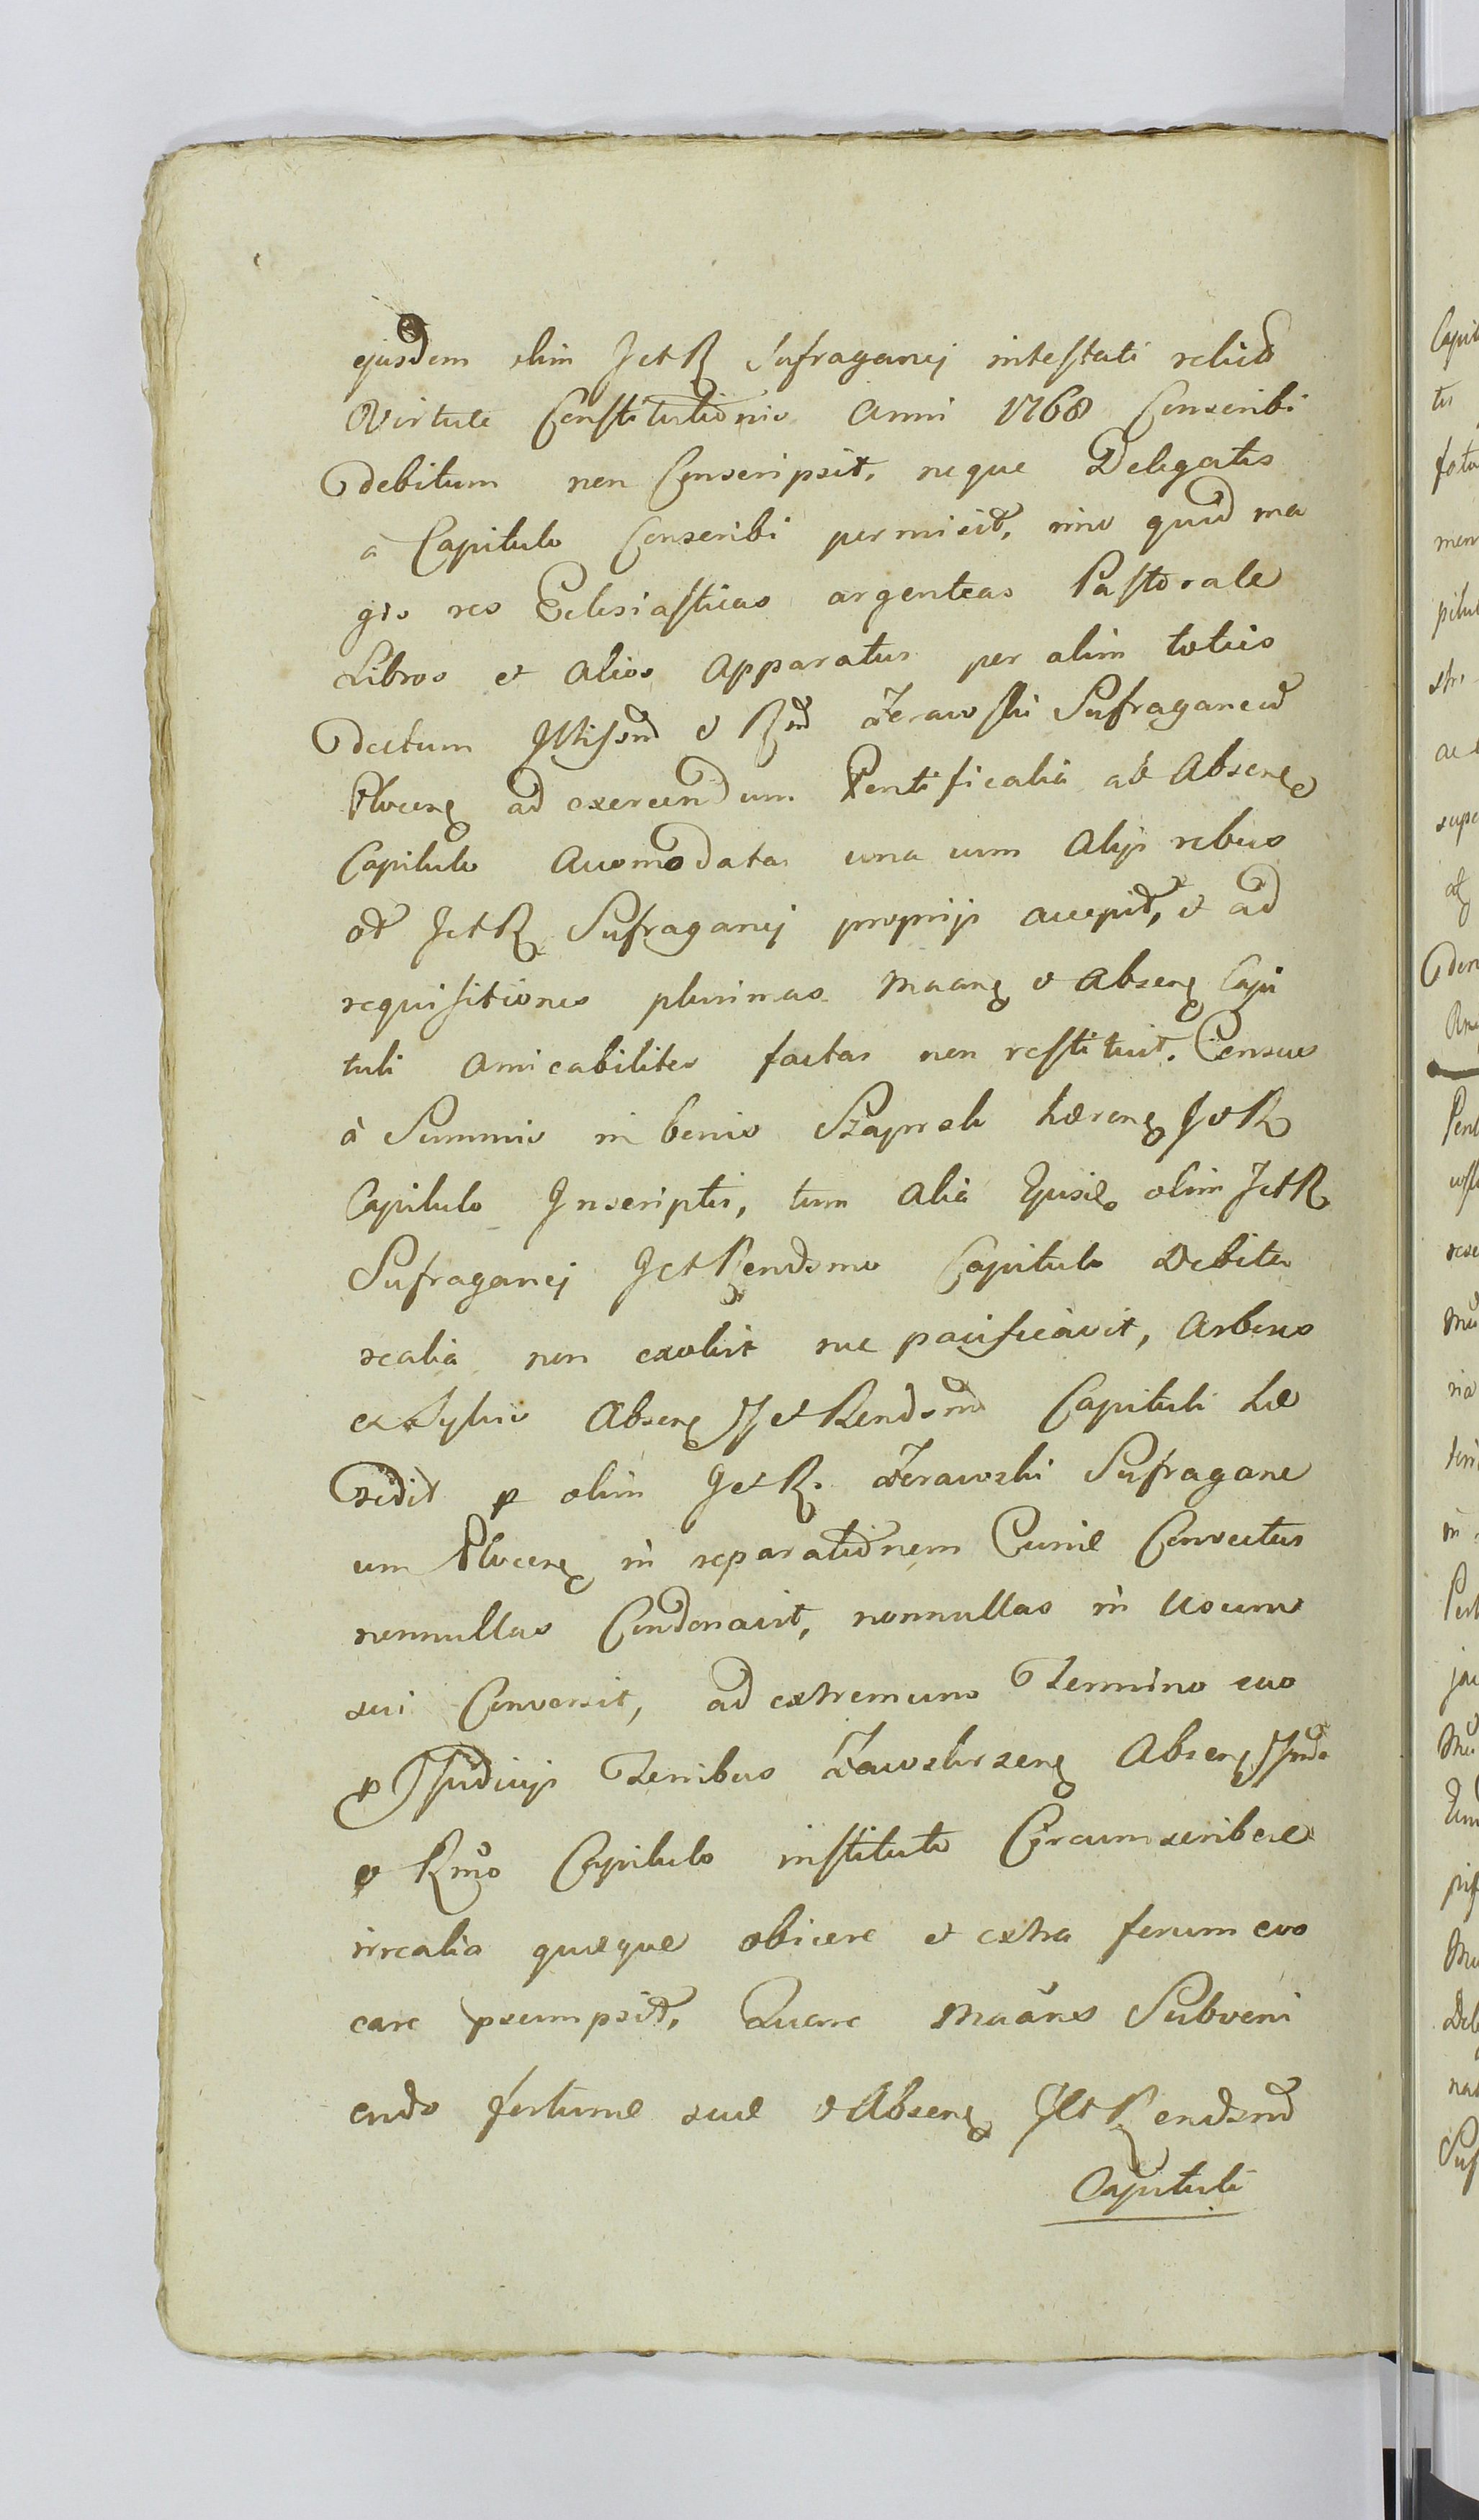 ejusdem olim J et R Sufraganej intestati relict
Virtute Constitutionis Anni 1768 Conscribi
debitum non Conscripsit, neque Delegatis
à Capitulo Conscribi permisit, imo quid ma
gis res Eclesiasticas argenteas Pastorale
Libros et alios Apparatus per olim totius
dictum Illissm et Rm Żerawski Sufraganeu
Plocen ad exercendum Pontificalia ab Absen
Capitulo Acomodatas una cum Alijs rebus
J et R Sufraganej proprijs accepit, et ad
requisitiones plurimas Maan et Absen Capi
tuli Amicabiliter factas non restituit. Census
à Summis in bonis Szapsk hæren J et R
Capitulo Inscriptis, tum alia Ejusd olim J et R
Sufraganej J et Rendsmo Capitulo Debita
realia non exolvit nec pacificavit, Arbores
ex Sylvis Absen J et Rendsm Capituli hæ
redit p olim J et R. Żerawski Sufragane
um Plocen in reparationem Curiæ Convectas
nonnullas Condonavit, nonnullas in Usum
sui Conversit, ad extremum Termino suo
p Judicijs Terribus Zawskrzen Absen
et Rmo Capitulo instituto Circumscribere
irrealia quæque obicere et extra forum evo
care psumpsit. Quare Maans Subveni
endo fortunæ suæ et Absen J et R endsm
Capituli
Capit